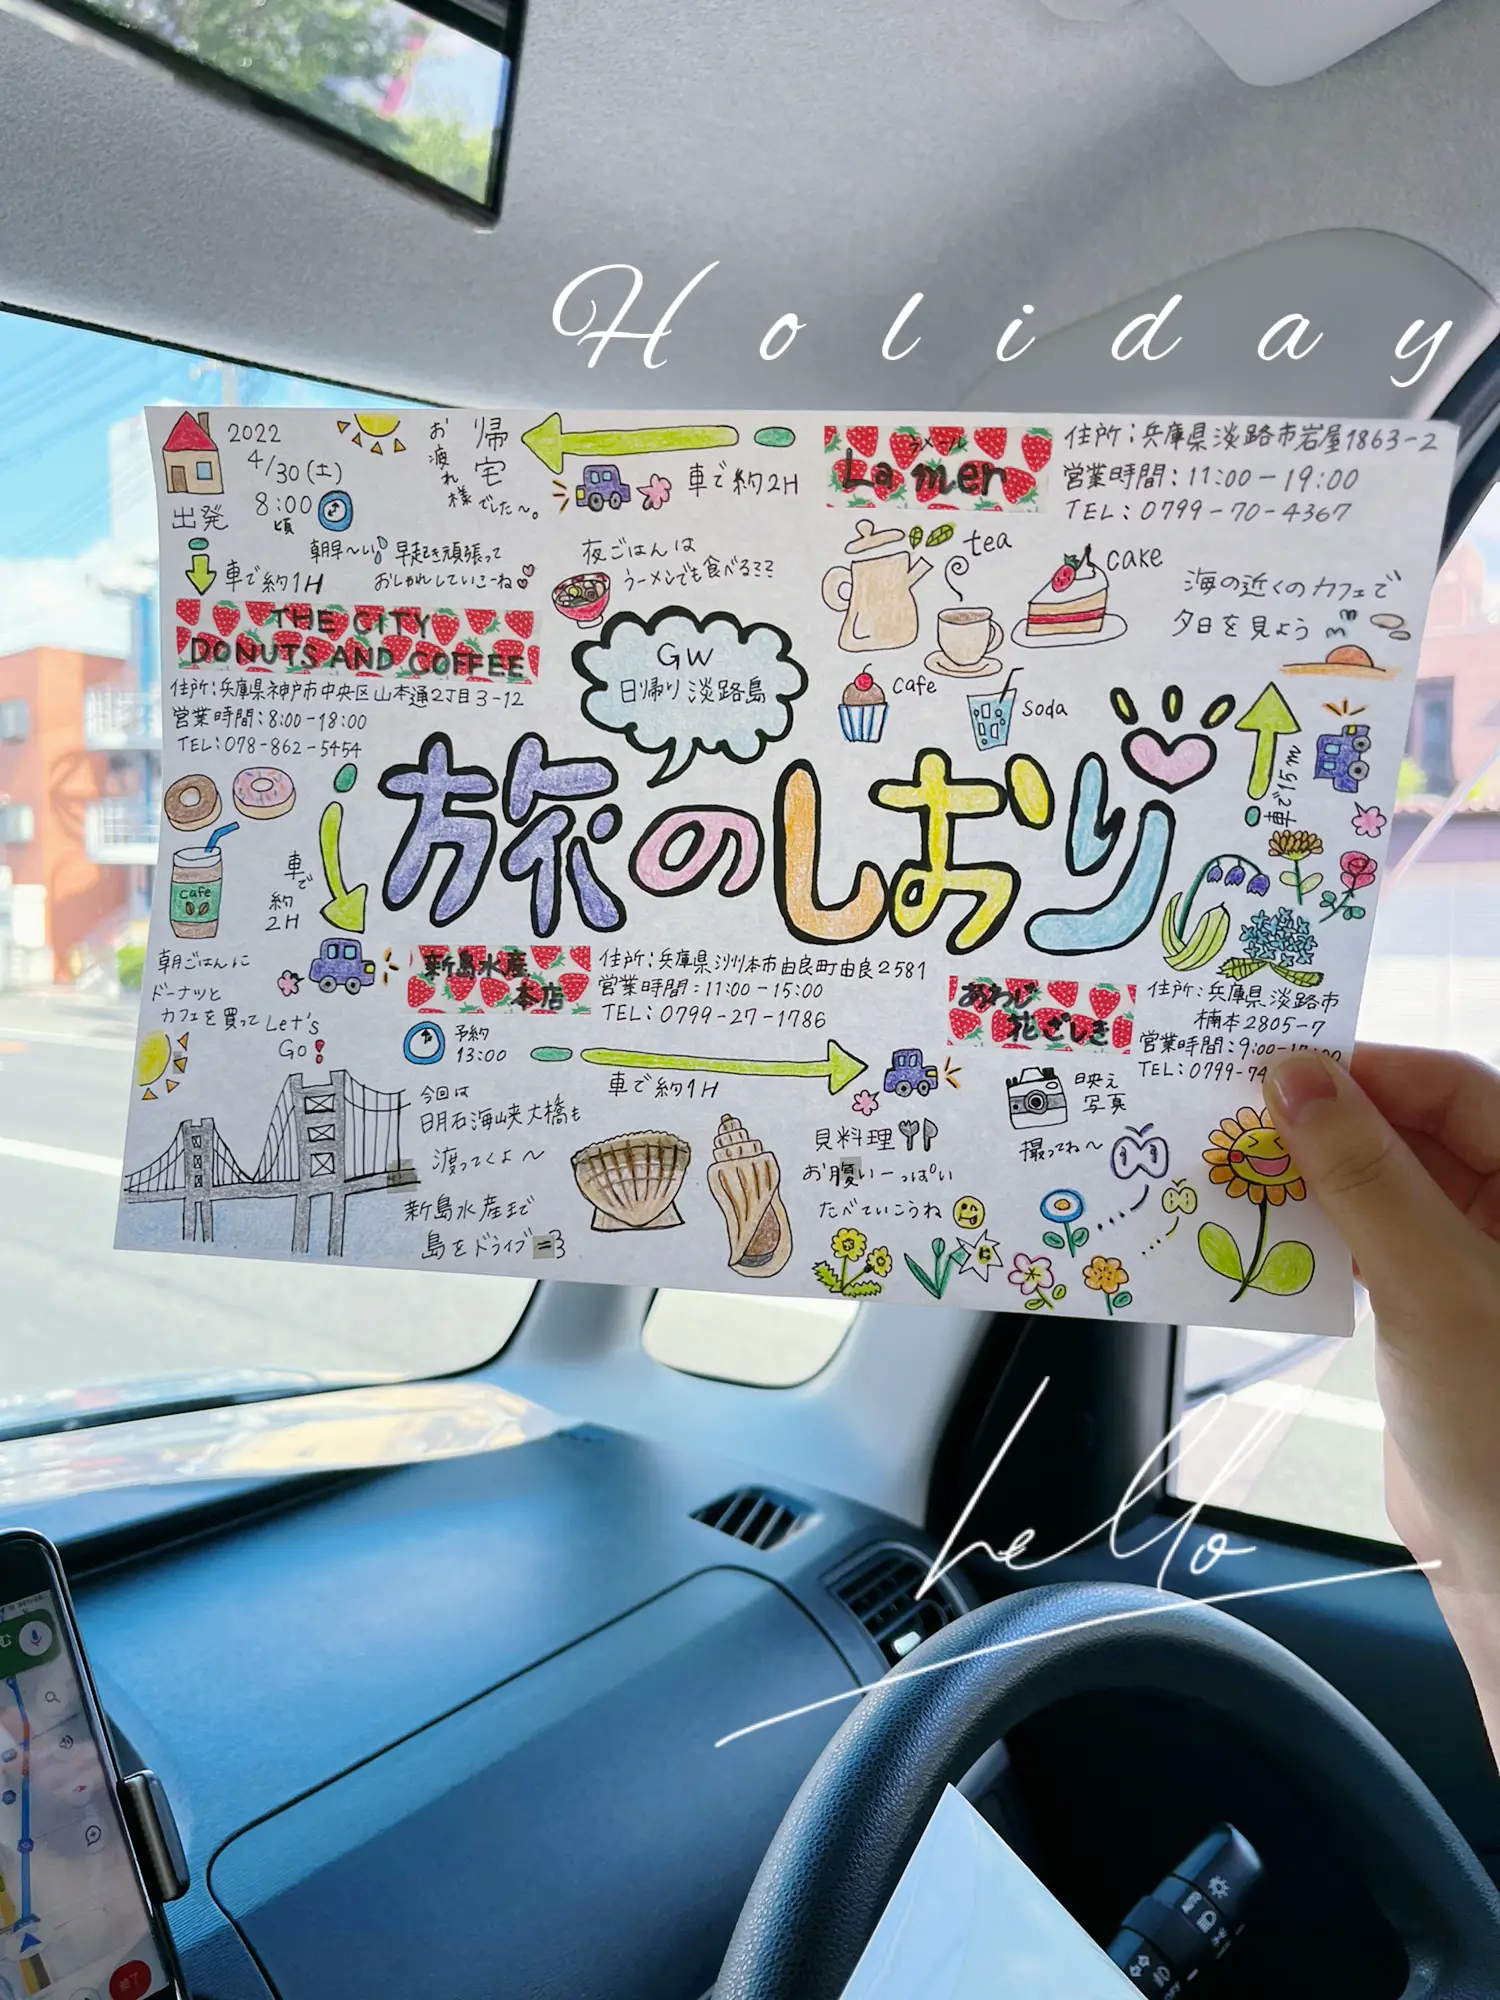 Holiday
2022
4/30(土)
8:00
頃
出発
車で約1H
朝早〜い
早起き頑張って
おしゃれしていこーね
THE CITY
DONUTS AND COFFEE
住所:兵庫県神戸市中央区山本通2丁目3-12
営業時間:8:00-18:00
TEL:078-862-5454
cafe
車で
約
2H
朝ごはんに
ドーナツと
カフェを買って Let's
Go!
今回は
明石海峡大橋も
渡ってくよ〜
新島水産まで
島をドライブ=3
GW
日帰り淡路島
旅のしおり
新島水産
本店
住所:兵庫県洲本市由良町由良2581
営業時間:11:00-15:00
TEL:0799-27-1786
予約
13:00
車で約1H
貝料理
お腹いーっぱい
たべていこうね
あわじ
花ざしき
住所:兵庫県淡路市
楠本2805-7
営業時間:9:00-
TEL:0799-74
映え
写真
撮ってね〜
車で15m
ラメール
La mer
住所:兵庫県淡路市岩屋1863-2
営業時間:11:00-19:00
TEL:0799-70-4367
tea
cake
cafe
soda
海の近くのカフェで
夕日を見よう
車で約2H
夜ごはんは
ラーメンでも食べる??
帰宅
お疲れ様でした〜。
hello
終了